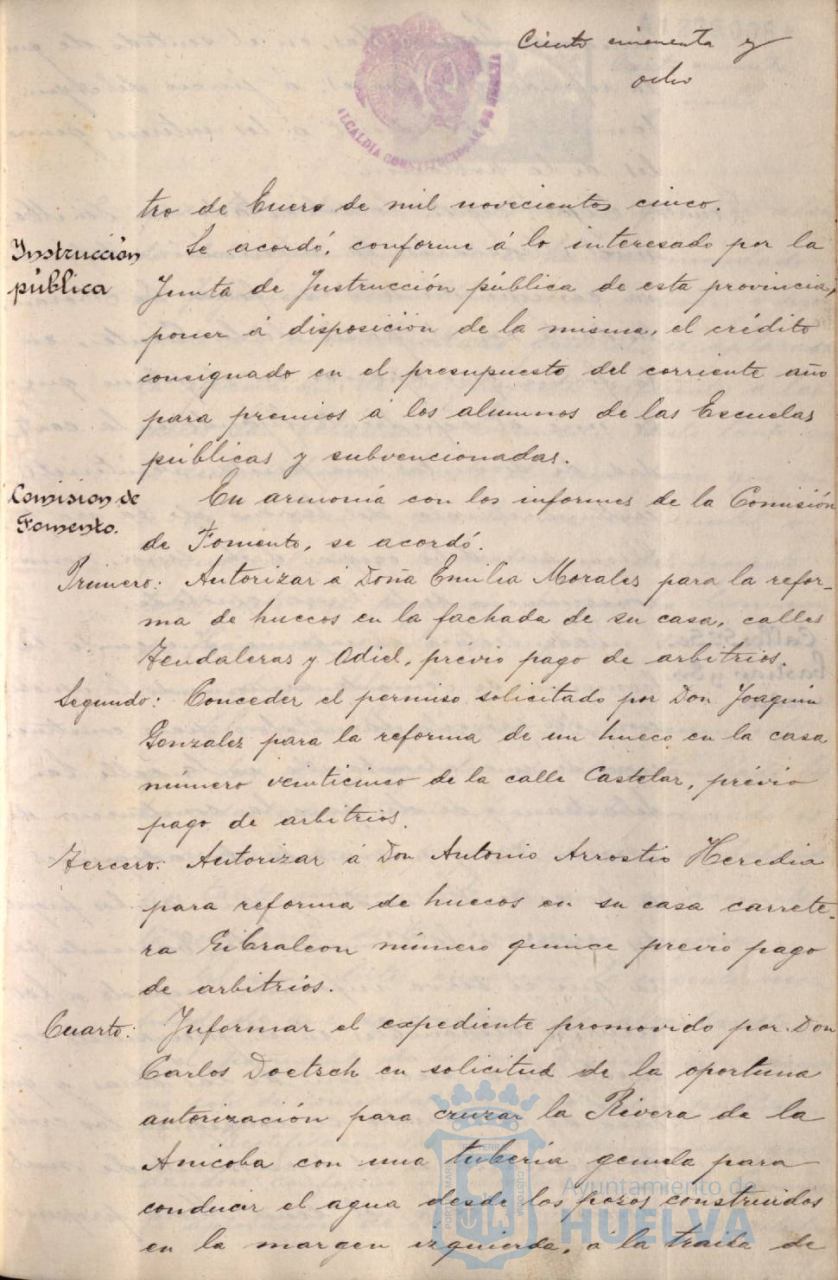 Ciento cincuenta y
ocho
ALCALDIA CONSTITUCIONAL DE HUELVA
tro de Enero de mil novecientos cinco.
Instrucción
pública
Se acordó, conforme á lo interesado por la
Junta de Instrucción pública de esta provincia,
poner á disposición de la misma, el crédito
consignado en el presupuesto del corriente año
para premios á los alumnos de las Escuelas
públicas y subvencionadas.
Comision de
Fomento.
En armonía con los informes de la Comisión
de Fomento, se acordó.
Primero: Autorizar á Doña Emilia Morales para la refor-
ma de huecos en la fachada de su casa, calles
Tendaleras y Odiel, prévio pago de arbitrios.
Segundo: Conceder el permiso solicitado por Don Joaquin
Gonzalez para la reforma de un hueco en la casa
número veinticinco de la calle Castelar, prévio
pago de arbitrios.
Tercero: Autorizar á Don Antonio Arrostio Heredia
para reforma de huecos en su casa carrete-
ra Gibraleon número quince previo pago
de arbitrios.
Cuarto: Informar el expediente promovido por Don
Carlos Doetsch en solicitud de la oportuna
autorización para cruzar la Rivera de la
Anicoba con una tubería gemela para
conducir el agua desde los pozos construidos
en la margen izquierda, a la traida de
Ayuntamiento de
HUELVA